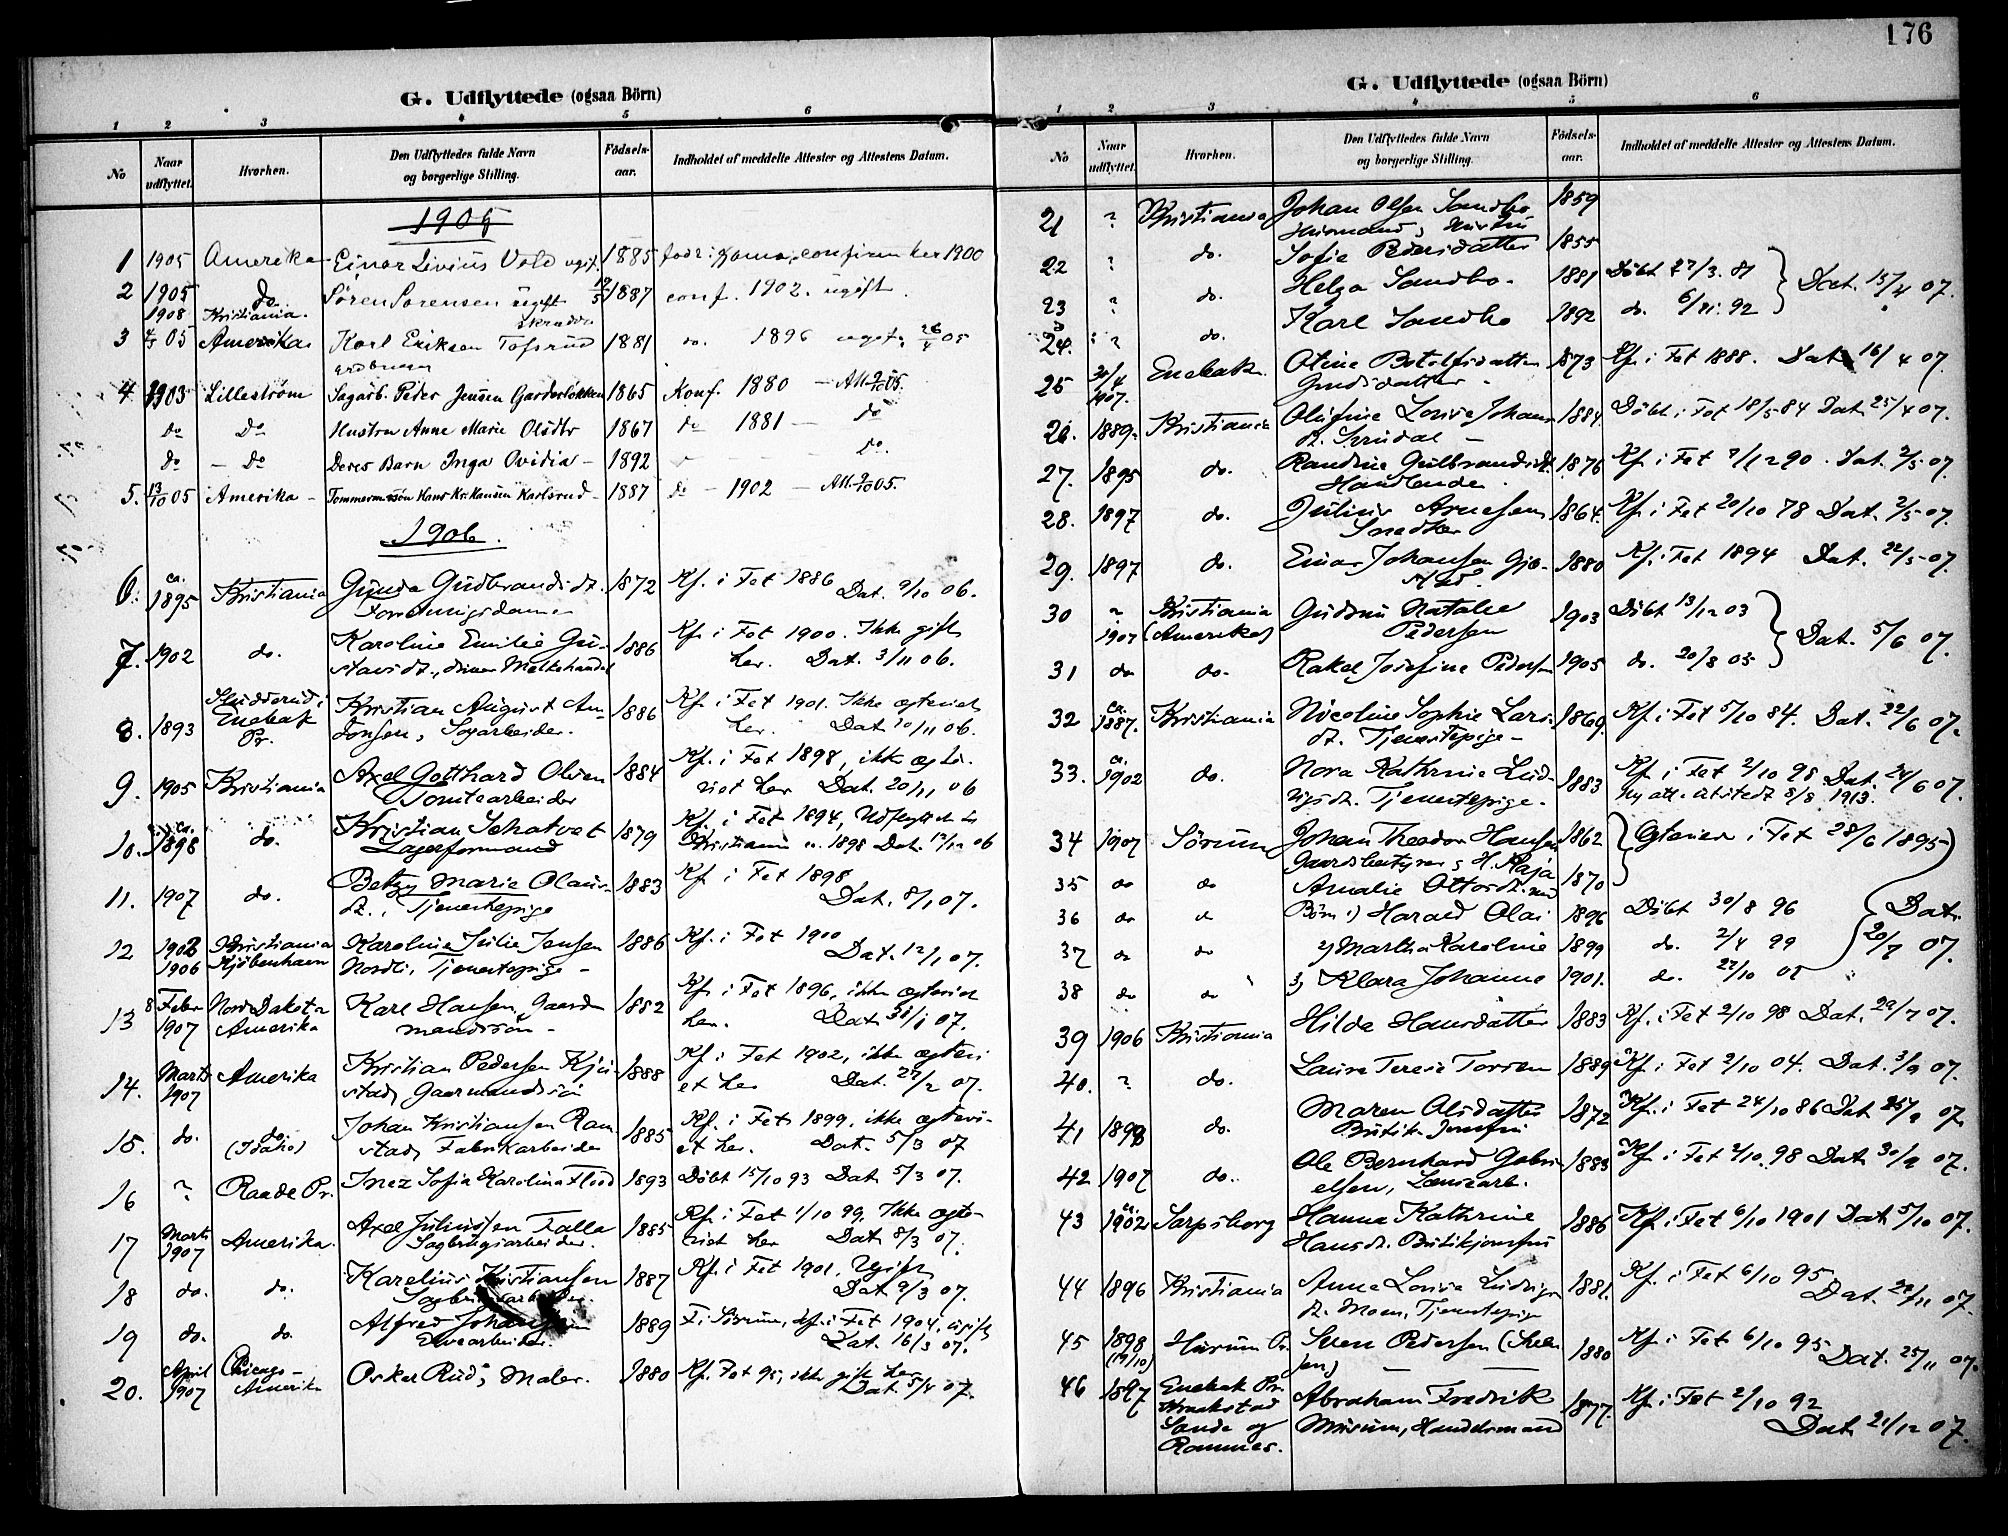 176
G. Udflyttede (ogsaa Börn)
1 2 3 4 5 6
No
Naar udflyttet.
Hvorhen.
Den Udflyttedes fulde Navn og borgerlige Stilling.
Födsels-aar.
Indholdet af meddelte Attester og Attestens Datum.
1905
1 1905 Amerika Einar Livius Vold ugift. 1885 confirm her 1900
2 1905 do Sören Sorensen ugift 12/5 1887 conf. 1902. ugift.
1908 Kristiania.
3 4/5 05 Amerika Karl Eriksen Tofsrud 1881 do. 1896 ugift 26/4 05
4 1903 Lilleström Sagarb. Peder Jensen Garderlökken 1865 Konf. 1880 – Att.
do do Hustru Anne Marie Olsdtr 1867 do 1881 – do
do – do Deres Barn Inga Ovidia – 1892 do.
5. 13/10 05 Amerika – Tommermansön Hans Kr. Hansen Karlsrud – 1887 do – 1902 – Att. 9/10 05.
1906.
6. ca. 1895 Kristiania Gunda Gudbrandsdt. 1872 Kf. i Fet 1886
Forretningsdame Dat. 9/10 06.
7. 1902 do. Karoline Emilie Gu- 1886 Kf. i Fet 1900. Ikke gift
stavsdt., driver Melkehandel her. Dat. 3/11 06.
8. 1893 Enebak Pr. Kristian August An- 1886 Kf. i Fet 1901. Ikke ægteviet
tonsen, Sagarbeider. her. Dat 10/11 06.
9. 1905 Kristiania Axel Gotthard Olsen 1884 Kf. i Fet 1898, ikke ægte-
Tomtearbeider viet her Dat. 20/11 06
10. ca. 1898 do. Kristian Schatvet 1879 Kf. i Fet 1894, Udflyttet til
Lagerformand Kristiania 1898 Dat. 13/12 06
11. 1907 do. Betzy Marie Olaus- 1883 Kf i Fet 1898
dt., Tjenestepige Dat. 8/1 07.
12 1902 Kristiania Karoline Julie Jensen 1886 Kf. i Fet 1900
1906 Kjöbenhavn Nordli, Tjenestepige – Dat. 12/1 07.
13 8 Febr 1907 Nord Dakota Amerika Karl Hansen, Gaard- 1882 Kf. i Fet 1896, ikke ægteviet
mandssön – her. Dat 31/1 07.
14. Marts 1907 Amerika Kristian Pedersen Kju- 1888 Kf. i Fet 1902, ikke ægtevi
stad, Gaarmandssön et her Dat. 27/2 07.
15. do. do. (Idaho) Johan Kristiansen Ram- 1885 Kf. i Fet 1899, ikke ægtevi-
stad, Fabrikarbeider et her. Dat. 5/3 07
16 ? Raade Pr. Inez Sofia Karolina Flood 1893 Döbt 15/10 93 Dat 5/3 07.
17 Marts 1907 Amerika. Axel Juliussen Falla 1885 Kf. i Fet 1/10 99, Ikke ægte-
Sagbrugsarbeider. viet her Dat 8/3 07.
18 do. do. Karelius Kristiansen 1887 Kf. i Fet 1901. Ugift
Dat 9/3 07.
19 do. do. Alfred Johansen 1889 F. i Sörum, kf. i Fet 1904, ugift,
Elvearbeider. Dat. 16/3 07.
20. April 1907 Chicago – Amerika Osker Rud, Maler. 1880 Kf. Fet 95, ikke gift her
Dat 5/4 07.
G. Udflyttede (ogsaa Börn)
1 2 3 4 5 6
No
Naar udflyttet.
Hvorhen.
Den Udflyttedes fulde Navn og borgerlige Stilling.
Födsels-aar.
Indholdet af meddelte Attester og Attestens Datum.
21 ? Kristiania Johan Olsen Sandbo 1859
Husmand, Hustru
22 ? do. Sofie Pedersdatter 1855
23 ? do. Helga Sandbo. 1881 Döbt 27/3. 81 Dat. 15/4 07.
24. ? do. Karl Sandbo 1892 do. 6/11. 92
25 30/4 1907. Enebak. Oline Botolfsdatter 1873 Kf. i Fet 1888. Dat 16/4 07.
26. 1889. Kristiania Olufine Lovise Johans 1884 Döbt i Fet 18/5 84 Dat 25/4 07.
27. 1895 do. Randine Gulbrandsdt. 1876 Kf. i Fet 90. Dat. 2/5 07.
Handlende.
28. 1897 do. Julius Arnesen 1864. Kf. i Fet 20/10 78 Dat. 2/5 07.
Snedker
29. 1897 do. Einar Johansen Gjö- 1880 Kf. i Fet 1894 Dat. 22/5 07.
30 ? 1907 Kristiania (Amerika) Gudrun Natalie 1903 Döbt 13/12 03
Pedersen Dat. 5/6 07.
31 do do. Rakel Josefine Pedersen 1905 do. 20/8 05
32 ca. 1887. Kristiania Nicoline Sophie Lars- 1869. Kf. i Fet 5/10 84. Dat. 22/6 07.
dt. Tjenestepige –
33. ca. 1902 do. Nora Kathrine Lud- 1883 Kf. i Fet 2/10 98 Dat. 24/6 07.
vigsdt. Tjenestepige. Ny att. utstedt 8/8 1913.
34 1907 Sörum Johan Theodor Hansen 1862 Ægteviet i Fet 28/6 1895
Gaardsbestyrer, H. Maja
35 do do Amalie Ottosdt. 1870
36 do d Börn 1) Harald Olai 1896 Döbt 30/8 96 Dat.
37 do do 2) Martha Karoline 1899 do. 2/4 99 20/7 07.
38 do do 3) Klara Johanne 1901. do. 27/10 01
39 1906 Kristiania Hilda Hansdatter 1883 Kf. i Fet 2/10 98 Dat. 29/7 07.
40. ? do. Laura Teresie Torsen 1889 Kf. i Fet 2/10 04. Dat. 3/9 07.
41 1898 do. Maren Olsdatter 1872 Kf. i Fet 24/10 86 Dat 25/9 07.
Butik
42 1907 do. Ole Bernhard Gabri- 1883 Kf. i Fet 2/10. 98 Dat 30/9 07.
elsen,
43 ca. 1902 Sarpsborg Hanna Kathrine 1886 Kf. i Fet 6/10 1901 Dat 5/10 07.
Hansdt. Butikjomfru
44 1896 Kristiania Anne Lovise Ludvigs- 1881. Kf. i Fet 6/10 95
dt. Moen, Tjenestepige Dat. 20/11 07.
45 1898 (19/10) Hurum Pr. Sven Pedersen 1880 Kf. i Fet 6/10 95
Dat. 25/11 07.
46 1897 Enebak Pr. Abraham Fredrik 1877. Kf. i Fet 2/10 92
Sande og Handelsmand Dat 21/12 07.
Ramnes.